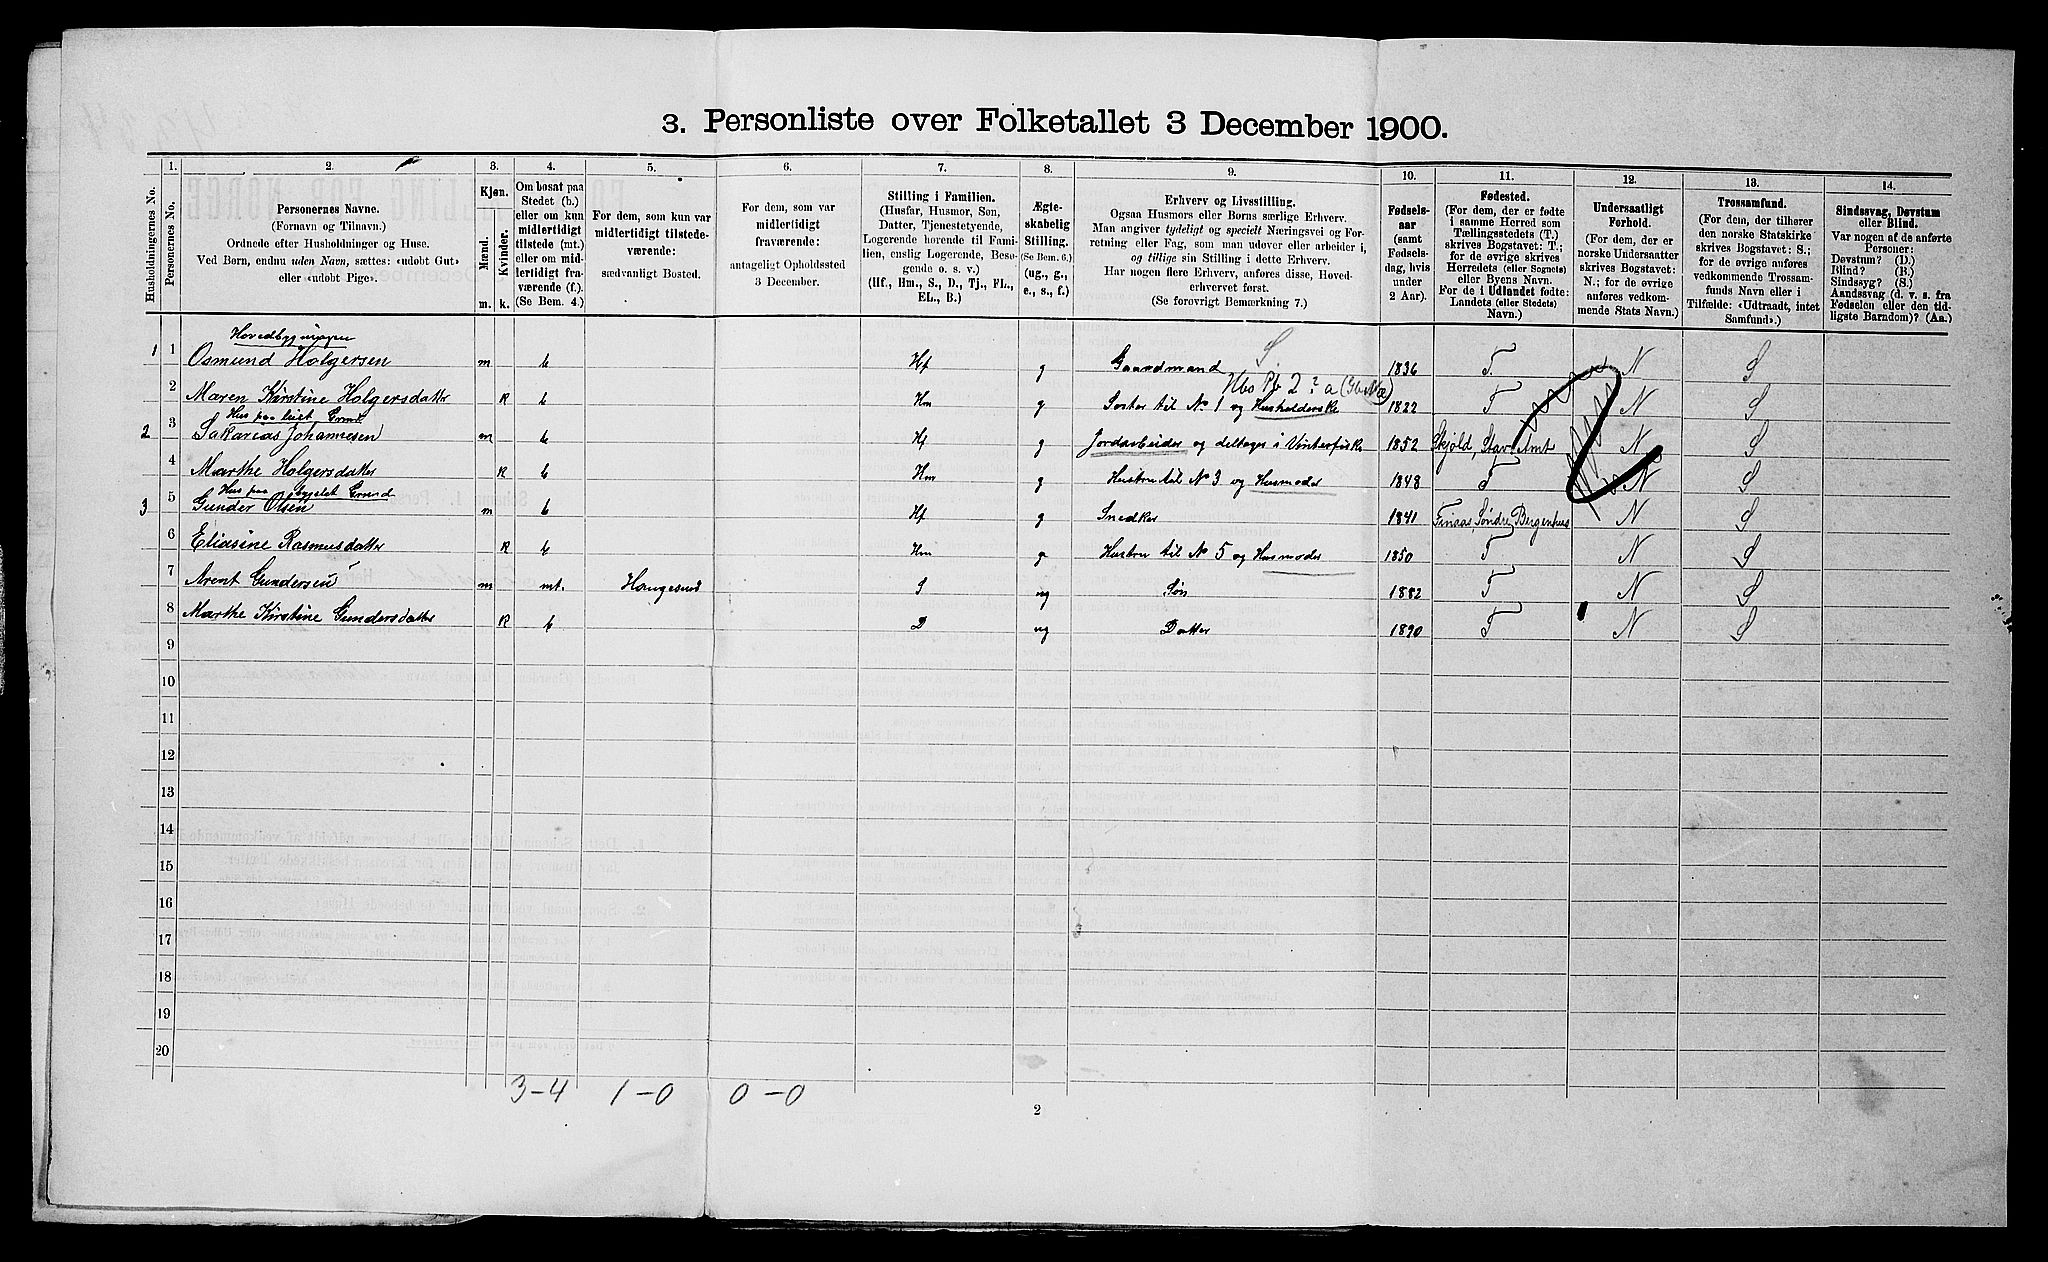 3. Personliste over Folketallet 3 December 1900.
1. 2. 3. 4. 5. 6. 7. 8. 9. 10. 11. 12. 13. 14.
Husholdningernes No.
Personernes No.
Personernes Navne.
(Fornavn og Tilnavn.)
Ordnede efter Husholdninger og Huse.
Ved Børn, endnu uden Navn, sættes: «udøbt Gut»
eller «udøbt Pige».
Kjøn.
Mænd.
Kvinder.
m. k.
Om bosat paa
Stedet (b.)
eller om kun
midlertidigt
tilstede (mt.)
eller om mid-
lertidigt fra-
værende (f.).
(Se Bem. 4.)
For dem, som kun var
midlertidigt tilstede-
værende:
sædvanligt Bosted.
For dem, som var
midlertidigt
fraværende:
antageligt Opholdssted
3 December.
Stilling i Familien.
(Husfar, Husmor, Søn,
Datter, Tjenestetyende,
Logerende hørende til Fami-
lien, enslig Logerende, Besø-
gende o. s. v.)
(Hf., Hm., S., D., Tj., FL.,
EL., B.)
Ægte-
skabelig
Stilling.
(Se Bem. 6.)
(ug., g.,
e., s., f.)
Erhverv og Livsstilling.
Ogsaa Husmors eller Børns særlige Erhverv.
Man angiver tydeligt og specielt Næringsvei og For-
retning eller Fag, som man udøver eller arbeider i,
og tillige sin Stilling i dette Erhverv.
Har nogen flere Erhverv, anføres disse, Hoved-
erhvervet først.
(Se forøvrigt Bemærkning 7.)
Fødsels-
aar
(samt
Fødsels-
dag, hvis
under
2 Aar).
Fødested.
(For dem, der er fødte
i samme Herred som
Tællingsstedets (T.)
skrives Bogstavet: T.;
for de øvrige skrives
Herredets (eller Sognets)
eller Byens Navn.
For de i Udlandet fødte:
Landets (eller Stedets)
Navn.)
Undersaatligt
Forhold.
(For dem, der er
norske Undersaatter
skrives Bogstavet:
N.; for de øvrige
anføres vedkom-
mende Stats Navn.)
Trossamfund.
(For dem, der tilhører
den norske Statskirke
skrives Bogstavet: S.;
for de øvrige anføres
vedkommende Trossam-
funds Navn eller i
Tilfælde: «Udtraadt, intet
Samfund».)
Sindssvag, Døvstum
eller Blind.
Var nogen af de anførte
Personer:
Døvstum? (D.)
Blind? (B.)
Sindssyg? (S.)
Aandssvag (d. v. s. fra
Fødselen eller den tid-
ligste Barndom)? (Aa.)
Hovedbygningen
1 1 Osmund Holgersen m b Hf g Gaardmand S. 1836 T. N S
2 Maren Kirstine Holgersdatter K b Hm g Søster til No 1 og Husholderske 1822 T N S
Hus paa leiet Grund
2 3 Sakarias Johannesen m b Hf g Jordarbeider og deltager i Vinterfiske 1852 Skjold, Stav. Amt N S
4 Marthe Holgersdatter K b Hm g Hustru til No 3 og Husmoder 1848 T N S
Hus paa bygslet Grund
3 5 Gunder Olsen m b Hf g Snedker 1841 Finaas, Søndre Bergenhus N S
6 Eliasine Rasmusdatter K b Hm g Hustru til No 5 og Husmoder 1850 T N S
7 Arent Gundersen m mt. Haugesund S ug Søn 1882 T N S
8 Marthe Kirstine Gundersdatter K b D ug Datter 1890 T N S
9
10
11
12
13
14
15
16
17
18
19
20
3-4 1-0 0-0
2